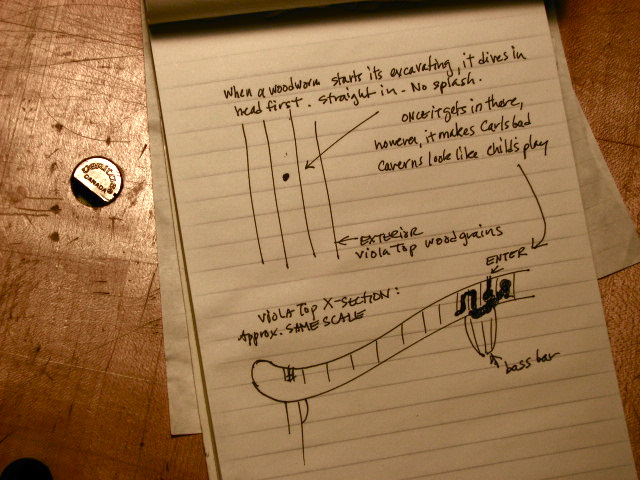 When a woodworm starts its excavating, it dives in
head first. straight in. No splash.
once it gets in there,
however, it makes Carlsbad
caverns look like child's play
EXTERIOR
viola Top woodgrains
ENTER
VIOLA TOP X-SECTION:
Approx. SAME SCALE
bass bar
CANADA